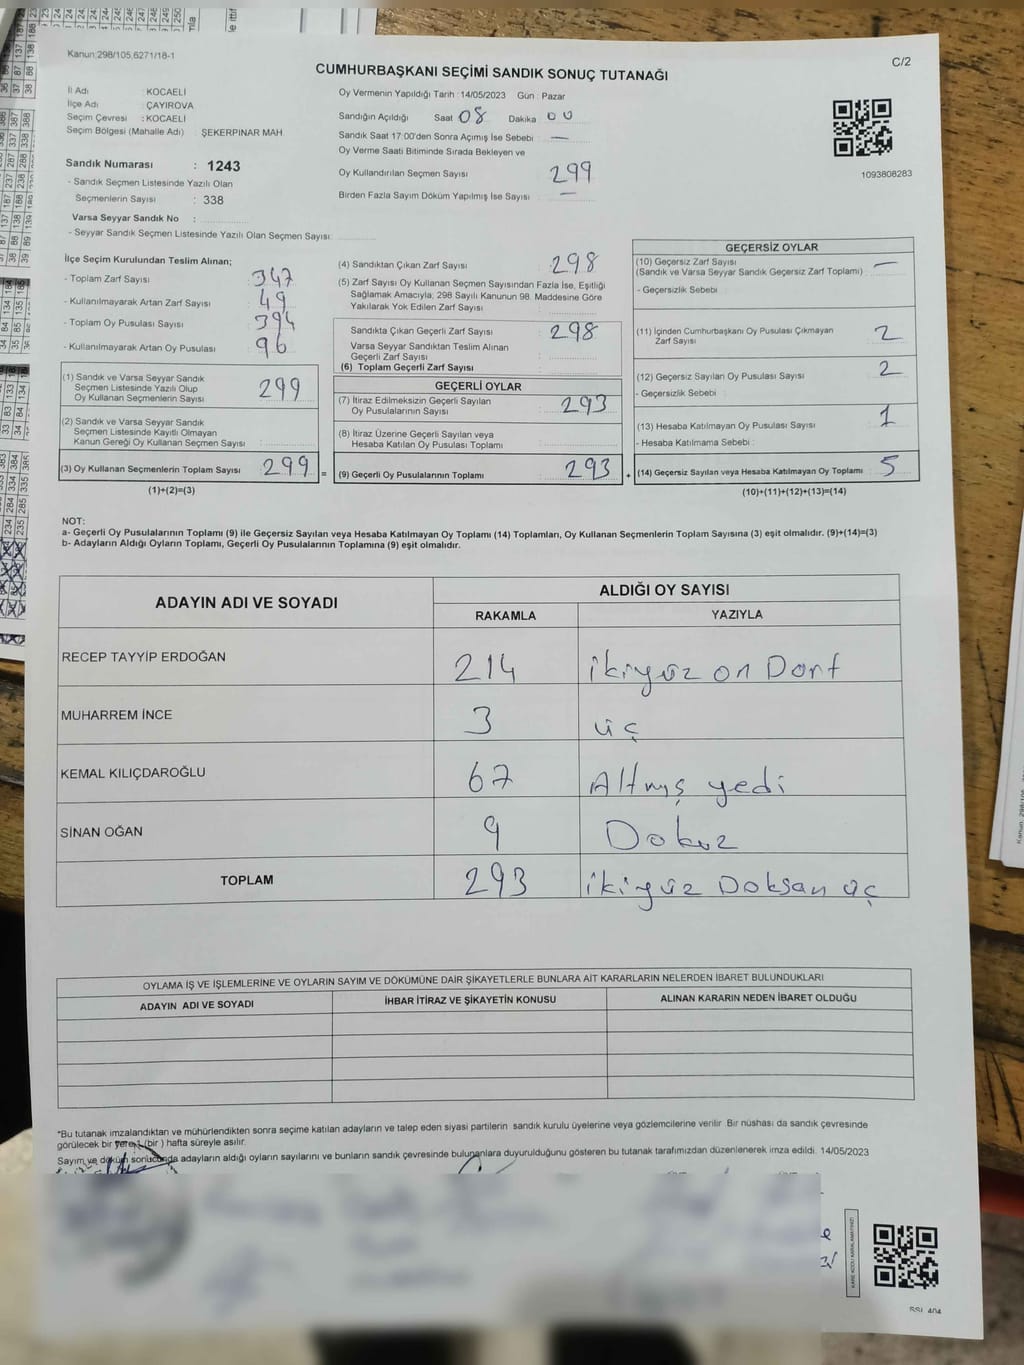 Kanun:298/105,6271/18-1
C/2
CUMHURBAŞKANI SEÇİMİ SANDIK SONUÇ TUTANAĞI
İl Adı : KOCAELİ
İlçe Adı : ÇAYIROVA
Seçim Çevresi : KOCAELİ
Seçim Bölgesi (Mahalle Adı) ŞEKERPINAR MAH
Sandık Numarası : 1243
- Sandık Seçmen Listesinde Yazılı Olan
Seçmenlerin Sayısı : 338
Varsa Seyyar Sandık No :
- Seyyar Sandık Seçmen Listesinde Yazılı Olan Seçmen Sayısı:
Oy Vermenin Yapıldığı Tarih : 14/05/2023 Gün : Pazar
Sandığın Açıldığı Saat 08 Dakika 00
Sandık Saat 17:00'den Sonra Açımış İse Sebebi : —
Oy Verme Saati Bitiminde Sırada Bekleyen ve
Oy Kullandırılan Seçmen Sayısı : 299
Birden Fazla Sayım Döküm Yapılmış İse Sayısı : —
1093808283
İlçe Seçim Kurulundan Teslim Alınan;
- Toplam Zarf Sayısı : 347
- Kullanılmayarak Artan Zarf Sayısı : 49
- Toplam Oy Pusulası Sayısı : 394
- Kullanılmayarak Artan Oy Pusulası : 96
(1) Sandık ve Varsa Seyyar Sandık
Seçmen Listesinde Yazılı Olup
Oy Kullanan Seçmenlerin Sayısı : 299
(2) Sandık ve Varsa Seyyar Sandık
Seçmen Listesinde Kayıtlı Olmayan
Kanun Gereği Oy Kullanan Seçmen Sayısı :
(3) Oy Kullanan Seçmenlerin Toplam Sayısı : 299 =
(1)+(2)=(3)
(4) Sandıktan Çıkan Zarf Sayısı : 298
(5) Zarf Sayısı Oy Kullanan Seçmen Sayısından Fazla İse, Eşitliği
Sağlamak Amacıyla; 298 Sayılı Kanunun 98. Maddesine Göre
Yakılarak Yok Edilen Zarf Sayısı :
Sandıkta Çıkan Geçerli Zarf Sayısı : 298
Varsa Seyyar Sandıktan Teslim Alınan
Geçerli Zarf Sayısı :
(6) Toplam Geçerli Zarf Sayısı :
GEÇERLİ OYLAR
(7) İtiraz Edilmeksizin Geçerli Sayılan
Oy Pusulalarının Sayısı : 293
(8) İtiraz Üzerine Geçerli Sayılan veya
Hesaba Katılan Oy Pusulası Toplamı :
(9) Geçerli Oy Pusulalarının Toplamı : 293 +
GEÇERSİZ OYLAR
(10) Geçersiz Zarf Sayısı : —
(Sandık ve Varsa Seyyar Sandık Geçersiz Zarf Toplamı)
- Geçersizlik Sebebi :
(11) İçinden Cumhurbaşkanı Oy Pusulası Çıkmayan
Zarf Sayısı : 2
(12) Geçersiz Sayılan Oy Pusulası Sayısı : 2
- Geçersizlik Sebebi :
(13) Hesaba Katılmayan Oy Pusulası Sayısı : 1
- Hesaba Katılmama Sebebi :
(14) Geçersiz Sayılan veya Hesaba Katılmayan Oy Toplamı : 5
(10)+(11)+(12)+(13)=(14)
NOT:
a- Geçerli Oy Pusulalarının Toplamı (9) ile Geçersiz Sayılan veya Hesaba Katılmayan Oy Toplamı (14) Toplamları, Oy Kullanan Seçmenlerin Toplam Sayısına (3) eşit olmalıdır. (9)+(14)=(3)
b- Adayların Aldığı Oyların Toplamı, Geçerli Oy Pusulalarının Toplamına (9) eşit olmalıdır.
ADAYIN ADI VE SOYADI
ALDIĞI OY SAYISI
RAKAMLA YAZIYLA
RECEP TAYYİP ERDOĞAN 214 ikiyüz on Dört
MUHARREM İNCE 3 üç
KEMAL KILIÇDAROĞLU 67 Altmış yedi
SİNAN OĞAN 9 Dokuz
TOPLAM 293 ikiyüz Doksan üç
OYLAMA İŞ VE İŞLEMLERİNE VE OYLARIN SAYIM VE DÖKÜMÜNE DAİR ŞİKAYETLERLE BUNLARA AİT KARARLARIN NELERDEN İBARET BULUNDUKLARI
ADAYIN ADI VE SOYADI İHBAR İTİRAZ VE ŞİKAYETİN KONUSU ALINAN KARARIN NEDEN İBARET OLDUĞU
*Bu tutanak imzalandıktan ve mühürlendikten sonra seçime katılan adayların ve talep eden siyasi partilerin sandık kurulu üyelerine veya gözlemcilerine verilir. Bir nüshası da sandık çevresinde
görülecek bir yere 1 (bir ) hafta süreyle asılır.
Sayım ve döküm sonucunda adayların aldığı oyların sayılarını ve bunların sandık çevresinde bulunanlara duyurulduğunu gösteren bu tutanak tarafımızdan düzenlenerek imza edildi. 14/05/2023